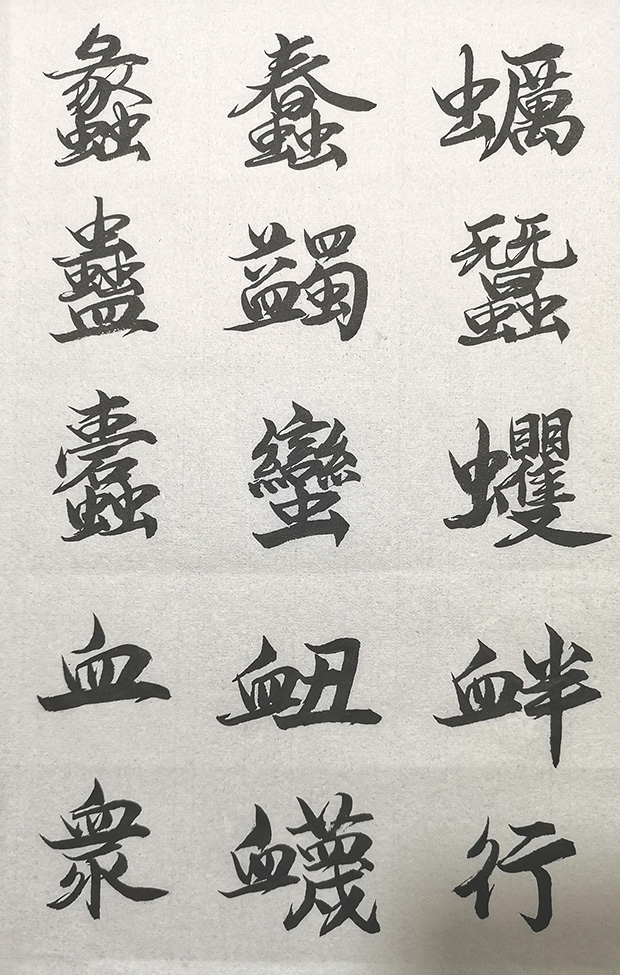 蠡蠢蠣
蠱蠲蠶
蠹蠻蠼
血衄衅
衆衊行